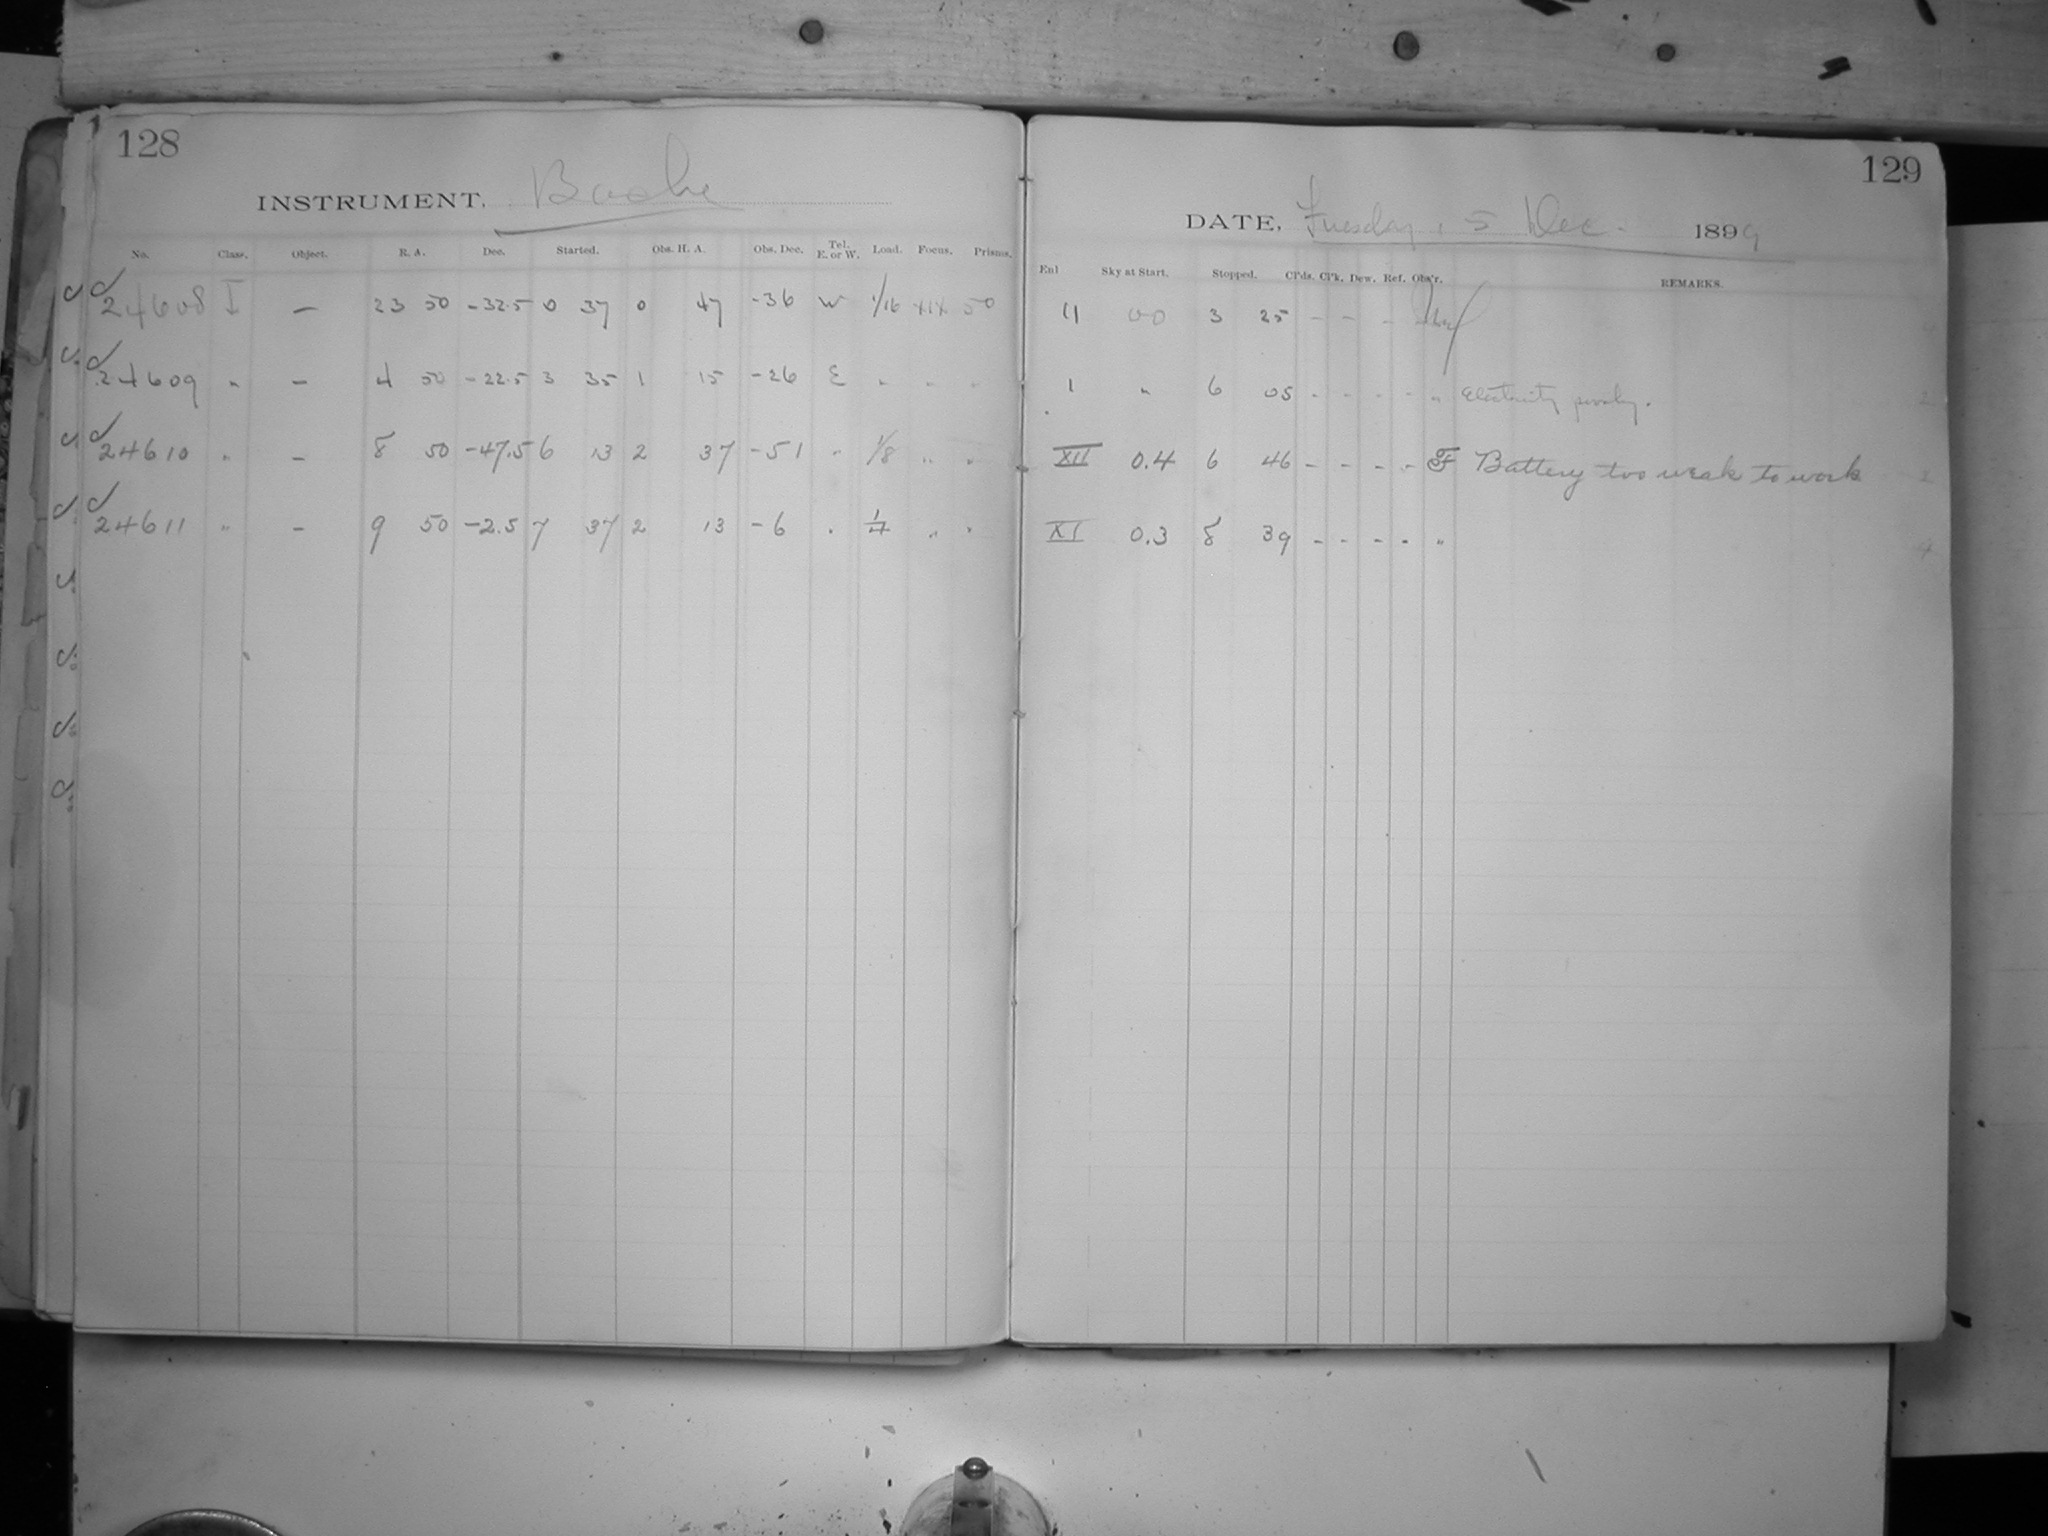 128
INSTRUMENT. Bache
No. Class. Object. R. A. Dec. Started. Obs. H. A. Obs. Dec. Tel. E. or W. Load. Focus. Prisms.
24608 I — 23 50 -32.5 0 37 0 47 -36 W 1/16 50
24609 " — 4 50 -22.5 3 35 1 15 -26 E " " "
24610 " — 8 50 -47.5 6 13 2 37 -51 " 1/8 " "
24611 " — 9 50 -2.5 7 37 2 13 -6 " 1/4 " "
129
DATE, Tuesday, 5 Dec. 1899
Enl Sky at Start. Stopped. Cl'ds. Cl'k. Dew. Ref. Obs'r. REMARKS.
11 00 3 25 - - -
1 " 6 05 - - - - " Electricity
XII 0.4 6 46 - - - - F Battery too weak to work
XI 0.3 8 39 - - - - "